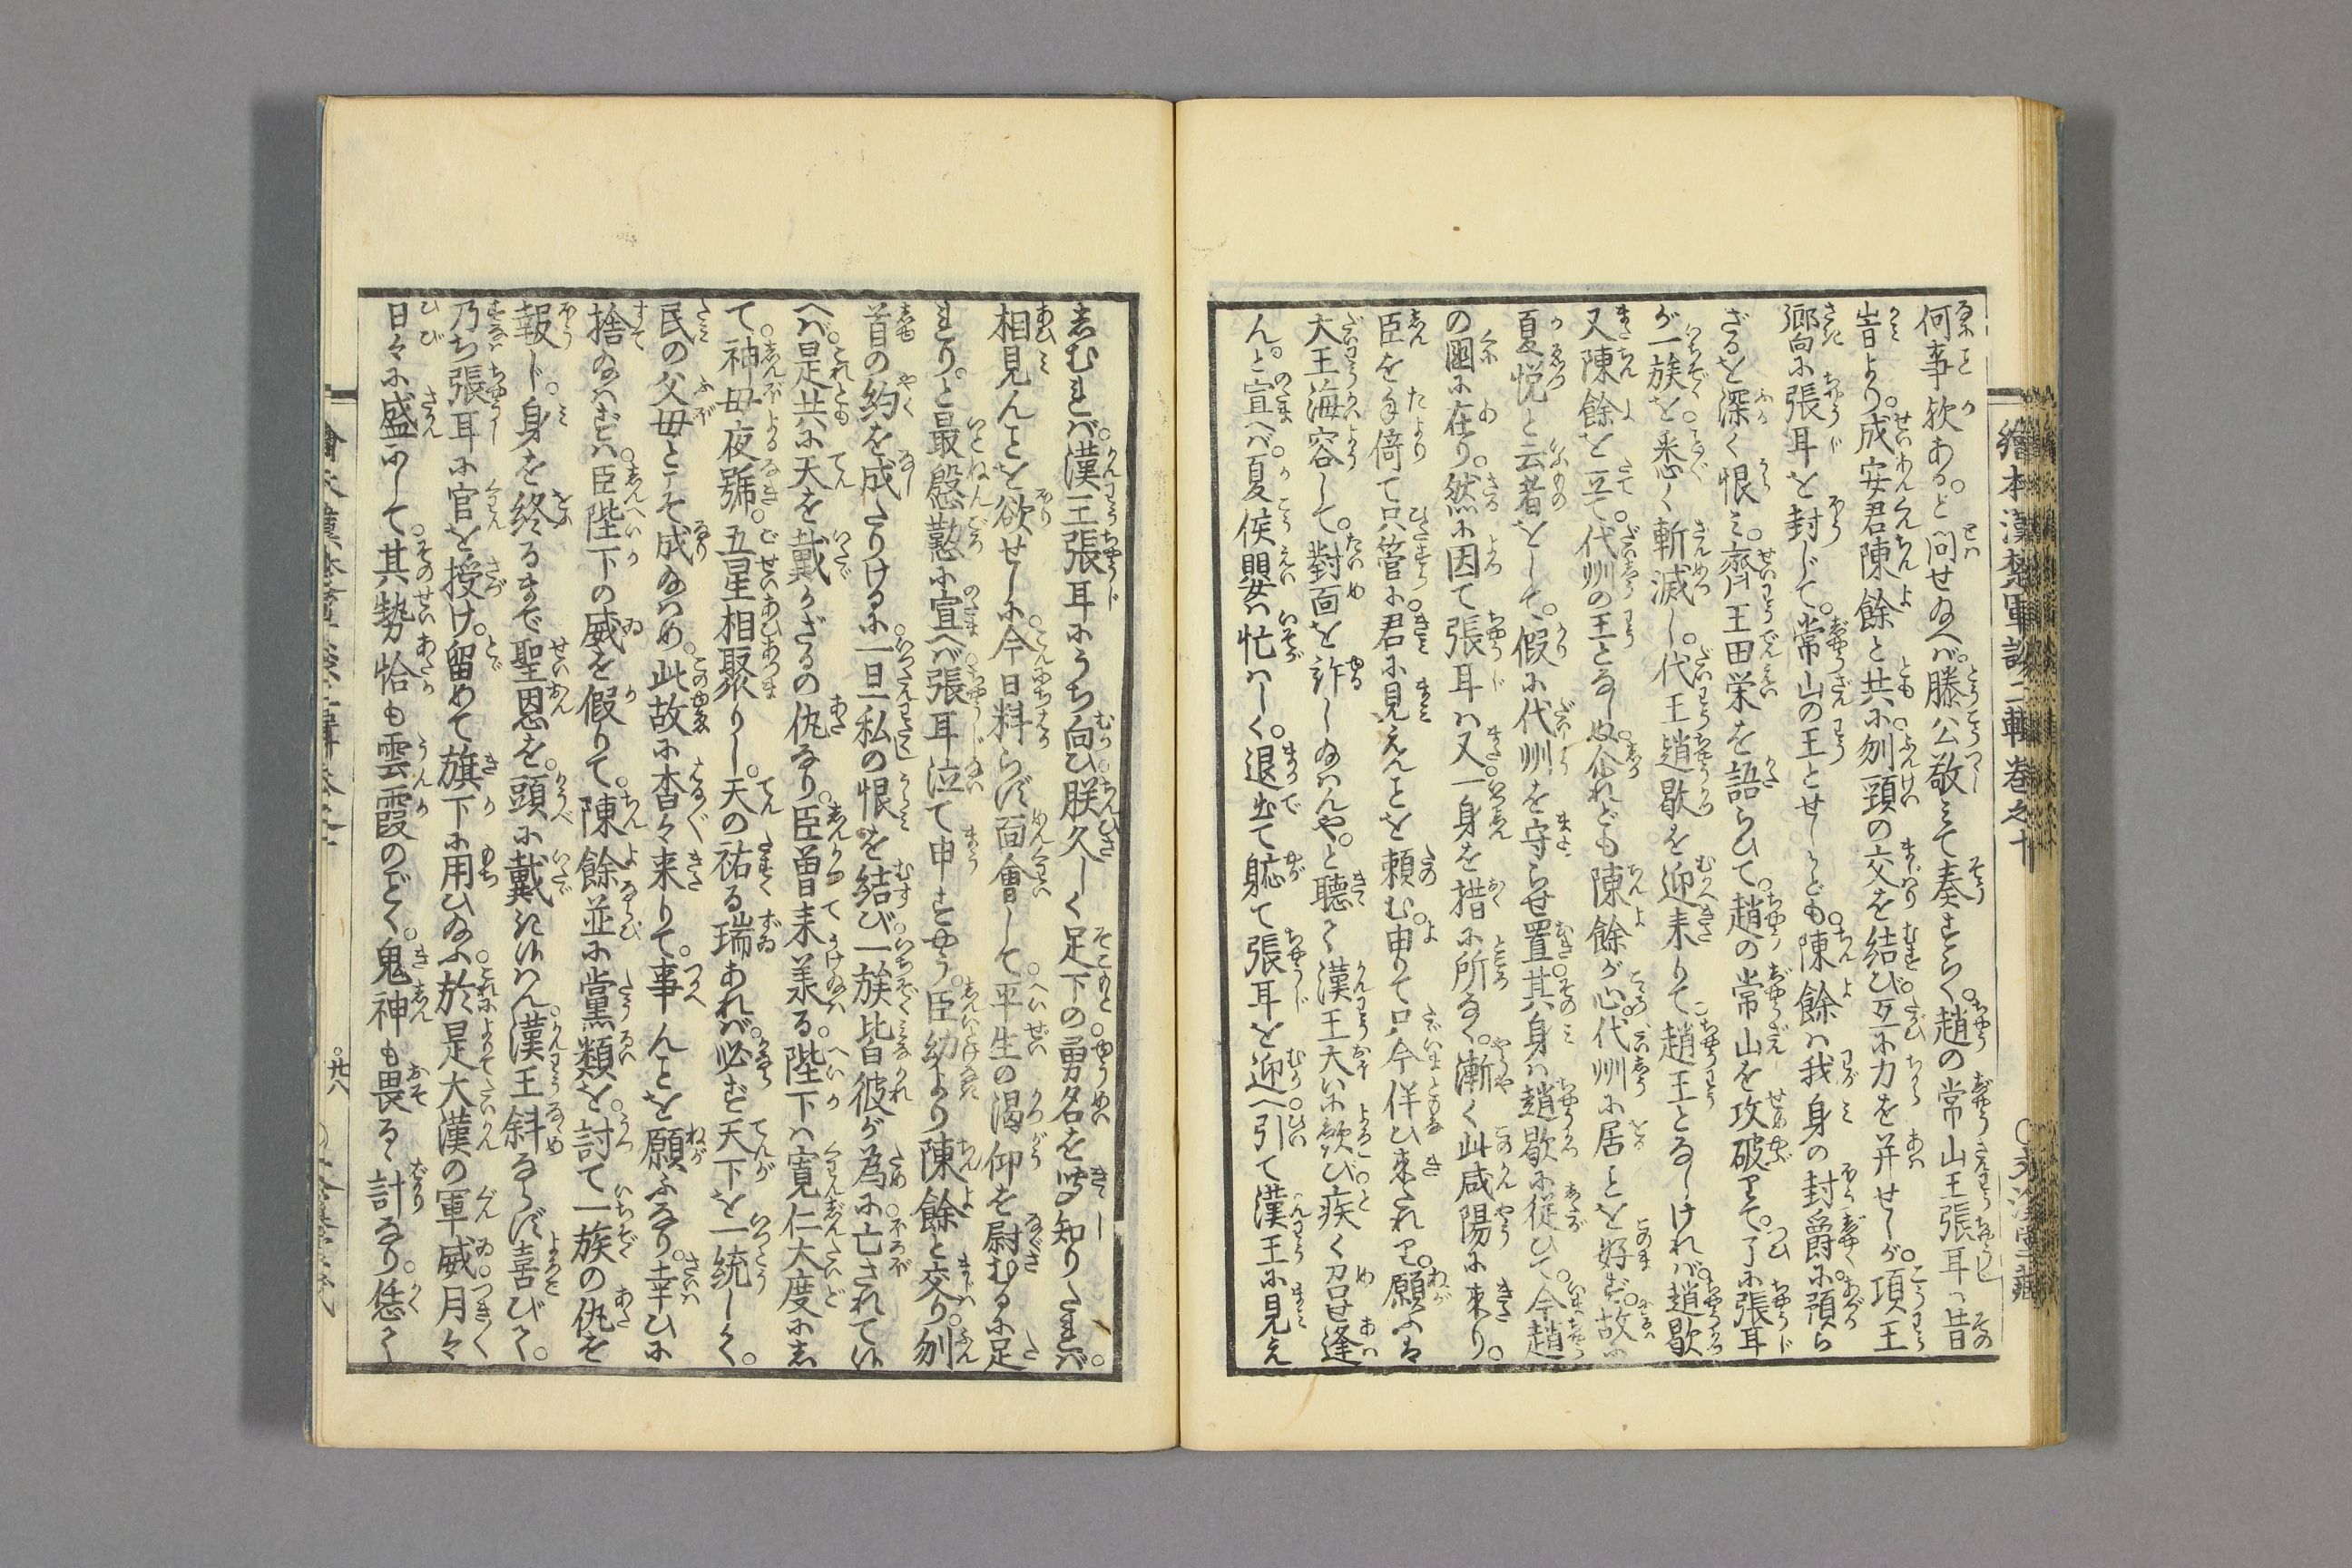 繪本漢楚軍談二輯巻之十
何事欤ある。と問せ給へバ。滕公敬ミて奏すらく。趙の常山王張耳ハ昔
岩より。成安君陳餘と共に刎頸の交を結び。互に力を并せしが。項王
郷に張耳を封じて。常山の王とせしかども。陳餘ハ我身の封爵に預ら
ざるを深く恨ミ。齊王田栄を語らひて。趙の常山を攻破りて。了に張耳
が一族を悉く斬滅し。代王趙歇を迎来りて趙王となしけれバ。趙歇
又陳餘を立て。代州の王となしぬ。介れども陳餘が心。代州に居ことを好ず。故に
夏悦と云者をして。假に代州を守らせ置。其身ハ趙歇に従ひて。今趙
の國に在り。然に因て張耳ハ又一身を措に所なく。漸く此咸陽に来り。
臣を便倚て只管に。君に見えんことを頼む。申て只今伴ひ来たれり。願ふハ
大王海容して。對面を許し給ハんや。と聴て漢王大に歓び疾く召せ逢
ん。と宣へバ。夏侯嬰ハ忙ハしく。退出て軈て張耳を迎へ引て漢王に見え
しむれバ。漢王張耳にうち向ひ。朕久しく足下の勇名を聞知りたれバ。
相見んことを欲せしに。今日料らず面會して。平生の渇仰を慰むるに足
れり。と最慇懃に宣へバ。張耳泣て申すやう。臣幼より陳餘と交り。刎
首の約を成たりけるに。一旦私の恨を結び。一族皆彼が為に亡されて候
へバ。是共に天を戴かざるの仇なり。臣曽て承る。陛下ハ寛仁大度にし
て。神母夜號。五星相聚りし。天の祐る瑞あれバ。必ず天下を一統しく。
民の父母とこそ成給ハめ。此故に杳々来りて。事んことを願ふなり。幸ひに
捨給ハずバ。臣陛下の威を假りて。陳餘並に黨類を。討て一族の仇を
報じ。身を終るまで聖恩を。頭に戴き候ハん。漢王斜ならず喜びく。
乃ち張耳に官を授け。留めて旗下に用ひ給ふ。於是大漢の軍威。月々
日々に盛にして。其勢恰も雲霞のごとく。鬼神も畏るゝ計なり。恁く
廿八